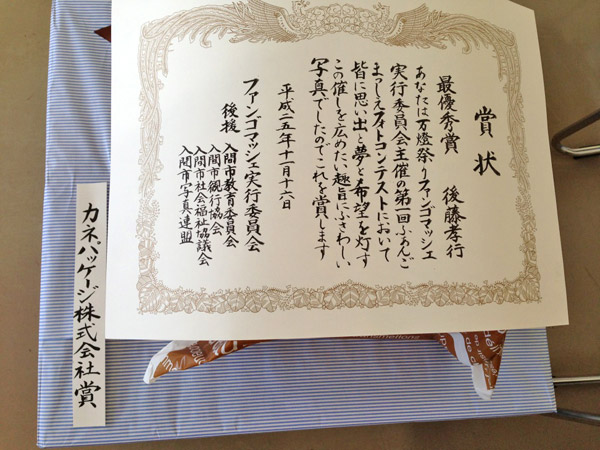 賞状
最優秀賞 後藤孝行
あなたは万燈祭りファンゴマッシェ
実行委員会主催の第一回ふぁんご
まっしぇフォトコンテストにおいて
皆に思い出と夢と希望を灯す
この催しを広めたい趣旨にふさわしい
写真でしたのでこれを賞します
平成二五年十一月十六日
ファンゴマッシェ実行委員会
後援 入間市教育委員会
入間市観行協会
入間市社会福祉協議会
入間市写真連盟
カネパッケージ株式会社賞